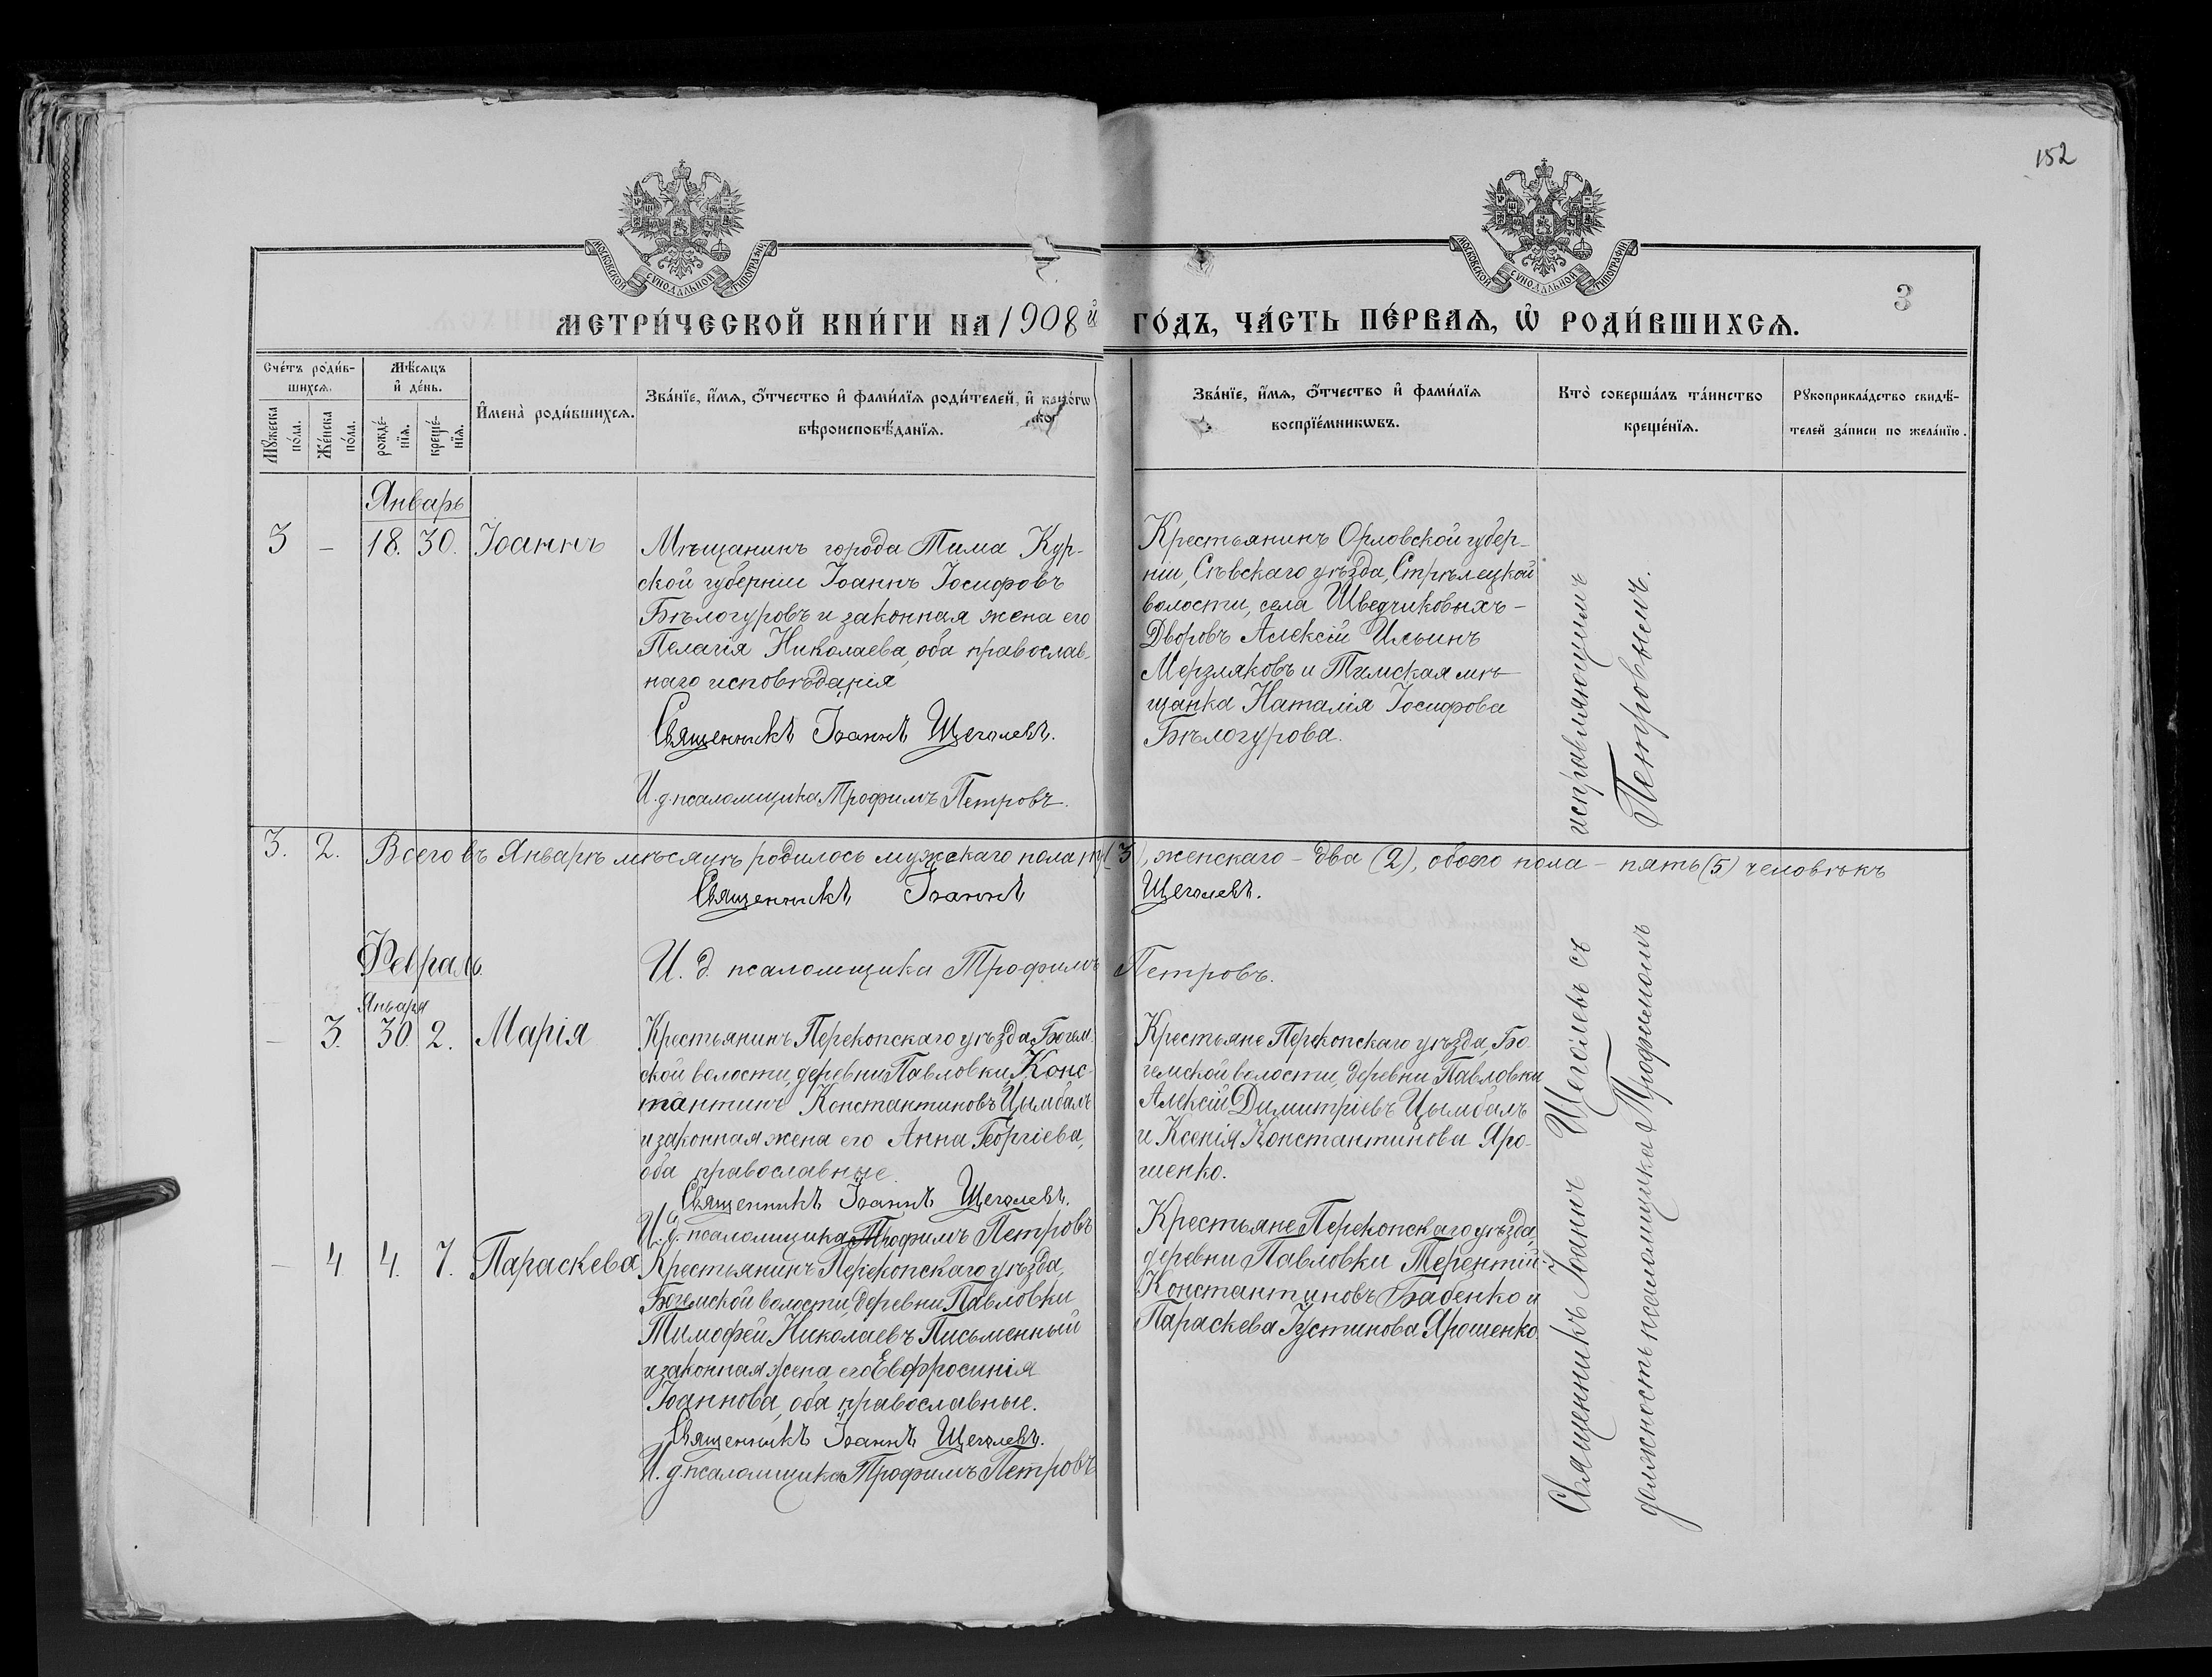 152
МОСКОВСКОЙ СУНОДАЛЬНОЙ ТИПОГРАФІИ
МОСКОВСКОЙ СУНОДАЛЬНОЙ ТИПОГРАФІИ
3
МЕТРИ́ЧЕСКОЙ КНИ́ГИ НА 1908й ГО́ДЪ, ЧА́СТЬ ПЕ́РВАѦ, Ѡ҆ РОДИ́ВШИХСѦ.
Сче́тъ роди́в-
шихсѧ.
Мꙋжеска по́ла.
Же́нска по́ла.
Мѣ́сѧцъ
и҆ де́нь.
рожде́-
нїѧ.
креще́-
нїѧ.
И҆мена̀ роди́вшихсѧ.
Зва́нїе, и҆́мѧ, ѻ҆́тчество и҆ фами́лїѧ роди́телей, и҆ како́гѡ
вѣроисповѣ́данїѧ.
Зва́нїе, и҆́мѧ, ѻ҆́тчество и҆ фами́лїѧ
воспрїе́мникѡвъ.
Кто̀ соверша́лъ та́инство
креще́нїѧ.
Рꙋкоприкла́дство свидѣ́-
телей за́писи по жела́нїю.
Январь
3 – 18. 30. Іоаннъ
Мѣщанинъ города Тима Кур-
ской губерніи Іоаннъ Іосифовъ
Бѣлогуровъ и законная жена его
Пелагія Николаева, оба православ-
наго исповѣданія
Священникъ Іоаннъ Щеголевъ.
И. д. псаломщика Трофимъ Петровъ.
Крестьянинъ Орловской губер-
ніи, Сѣвскаго уѣзда, Стрѣлецкой
волости, села Шведчиковыхъ –
Дворовъ Алексій Ильинъ
Мерзляковъ и Тимская мѣ-
щанка Наталія Іосифова
Бѣлогурова.
3. 2. Всего въ Январѣ мѣсяцѣ родилось мужскаго пола (3), женскаго – два (2), обоего пола – пять (5) человѣкъ
Священникъ Іоаннъ Щеголевъ.
И. д. псаломщика Трофимъ Петровъ.
Февраль
Января
– 3. 30 2. Марія
Крестьянинъ Перекопскаго уѣзда, Богем-
ской волости, деревни Павловки, Конс-
тантинъ Константиновъ Цымбалъ
и законная жена его Анна Георгіева,
оба православные.
Священникъ Іоаннъ Щеголевъ.
И. д. псаломщика Трофимъ Петровъ
Крестьяне Перекопскаго уѣзда, Бо-
гемской волости, деревни Павловки
Алексій Димитріевъ Цымбалъ
и Ксенія Константинова Яро-
шенко.
– 4 4. 7. Параскева
Крестьянинъ Перекопскаго уѣзда,
Богемской волости, деревни Павловки
Тимофей Николаевъ Письменный
и законная жена его Евфросинія
Іоаннова, оба православные.
Священникъ Іоаннъ Щеголевъ.
И. д. псаломщика Трофимъ Петровъ
Крестьяне Перекопскаго уѣзда,
деревни Павловки Терентій
Константиновъ Бабенко и
Параскева Іустинова Ярошенко
Священникъ Іоаннъ Щеголевъ съ исправляющимъ
должность псаломщика Трофимомъ Петровымъ.